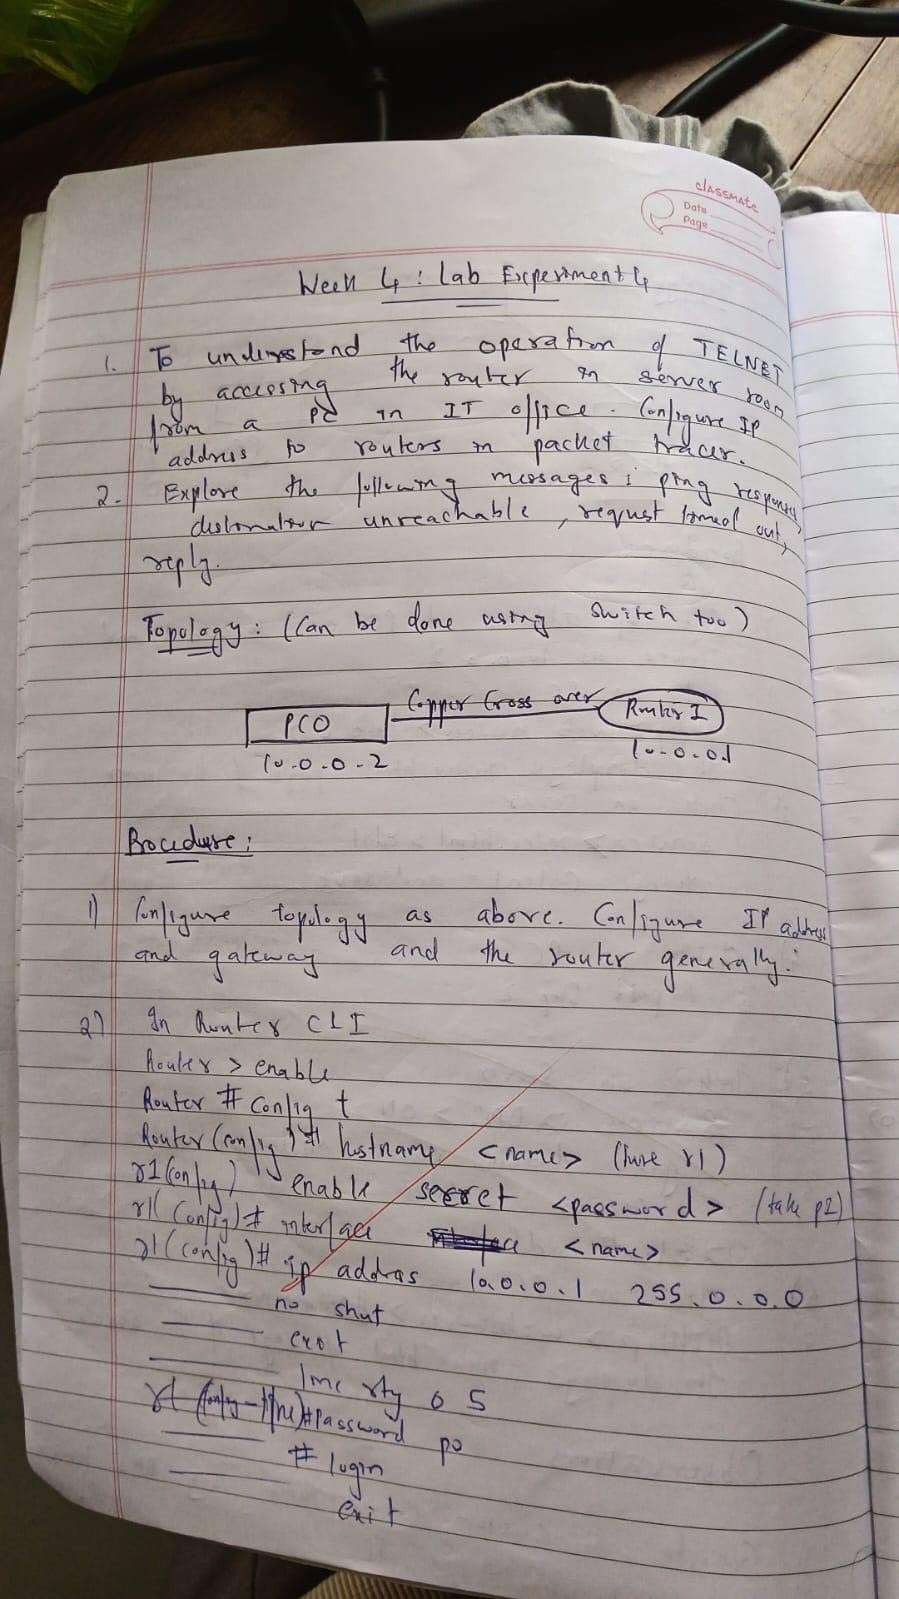 classmate
Date
Page
Week 4 : Lab Experiment 4
1. To understand the operation of TELNET
by accessing the router in server room
from a PC in IT office. Configure IP
address to routers in packet tracer.
2. Explore the following messages : ping responses,
destination unreachable, request timed out,
reply.
Topology : (Can be done using switch too)
Copper Cross over
PC0
Router 1
10.0.0.2
10.0.0.1
Procedure :
1) Configure topology as above. Configure IP address
and gateway and the router generally.
2) In Router CLI
Router > enable
Router # config t
Router (config) # hostname <name> (here r1)
r1 (config) enable secret <password> (take p1)
r1 (config) # interface <name>
r1 (config) # ip address 10.0.0.1 255.0.0.0
no shut
exit
line vty 0 5
r1 (config-line)# password p0
# login
exit